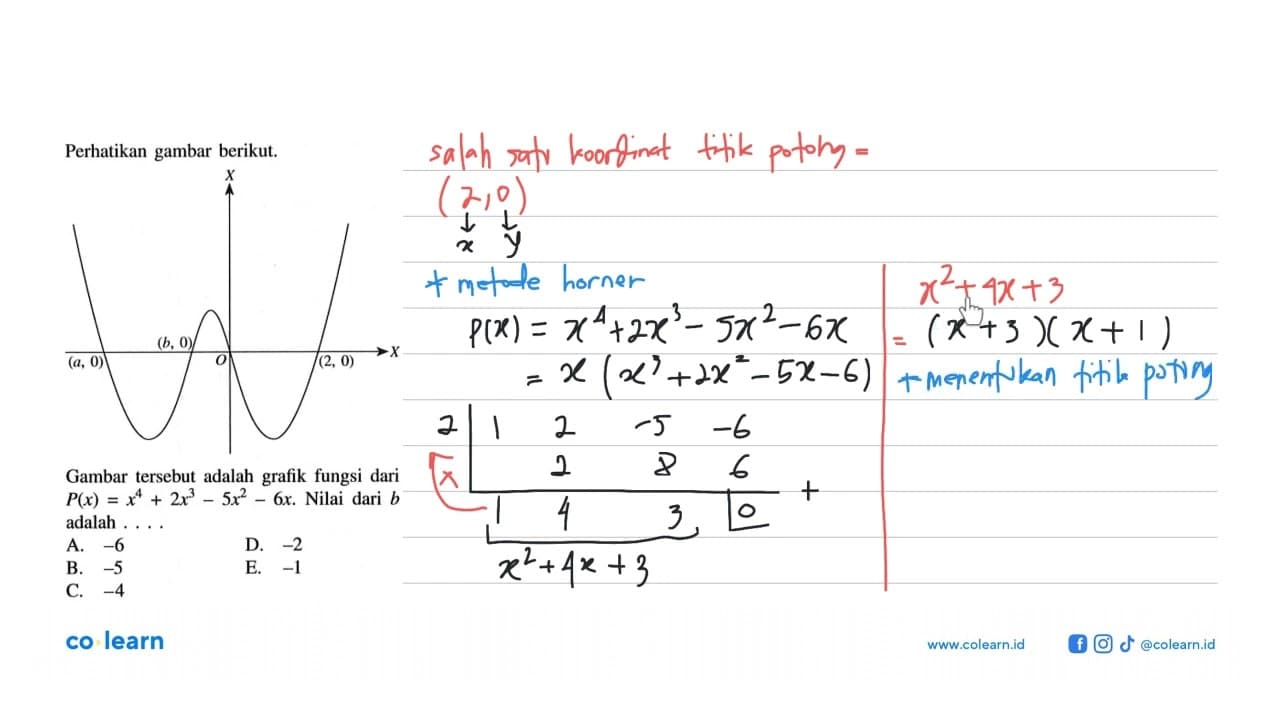 Perhatikan gambar berikut.
X
(b, 0)
X
(a, 0)
O
(2, 0)
Gambar tersebut adalah grafik fungsi dari
P(x) = x⁴ + 2x³ − 5x² − 6x. Nilai dari b
adalah . . . .
A. −6
B. −5
C. −4
D. −2
E. −1
salah satu koordinat titik potong =
(2,0)
↓ ↓
x y
* metode horner
P(x) = x⁴+2x³-5x²-6x
= x (x³+2x²-5x-6)
2 1 2 -5 -6
x 2 8 6
+
1 4 3 0
x²+4x+3
x²+4x+3
= (x+3)(x+1)
+ menentukan titik potong
co learn
www.colearn.id
@colearn.id